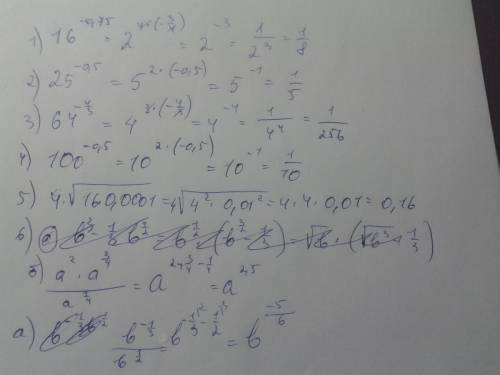 1) 16^{-0,75} = 2^{4·(-\frac{3}{4})} = 2^{-3} = \frac{1}{2^3} = \frac{1}{8}
2) 25^{-0,5} = 5^{2·(-0,5)} = 5^{-1} = \frac{1}{5}
3) 64^{-\frac{4}{3}} = 4^{3·(-\frac{4}{3})} = 4^{-4} = \frac{1}{4^4} = \frac{1}{256}
4) 100^{-0,5} = 10^{2·(-0,5)} = 10^{-1} = \frac{1}{10}
5) 4·\sqrt{160,0001} = 4\sqrt{4^2·0,01^2} = 4·4·0,01 = 0,16
6)
б) \frac{a^2·a^{\frac{3}{4}}}{a^{\frac{1}{4}}} = a^{2+\frac{3}{4}-\frac{1}{4}} = a^{2,5}
а) \frac{b^{-\frac{1}{3}}}{b^{\frac{1}{2}}} = b^{-\frac{1}{3}-\frac{1}{2}} = b^{\frac{-5}{6}}